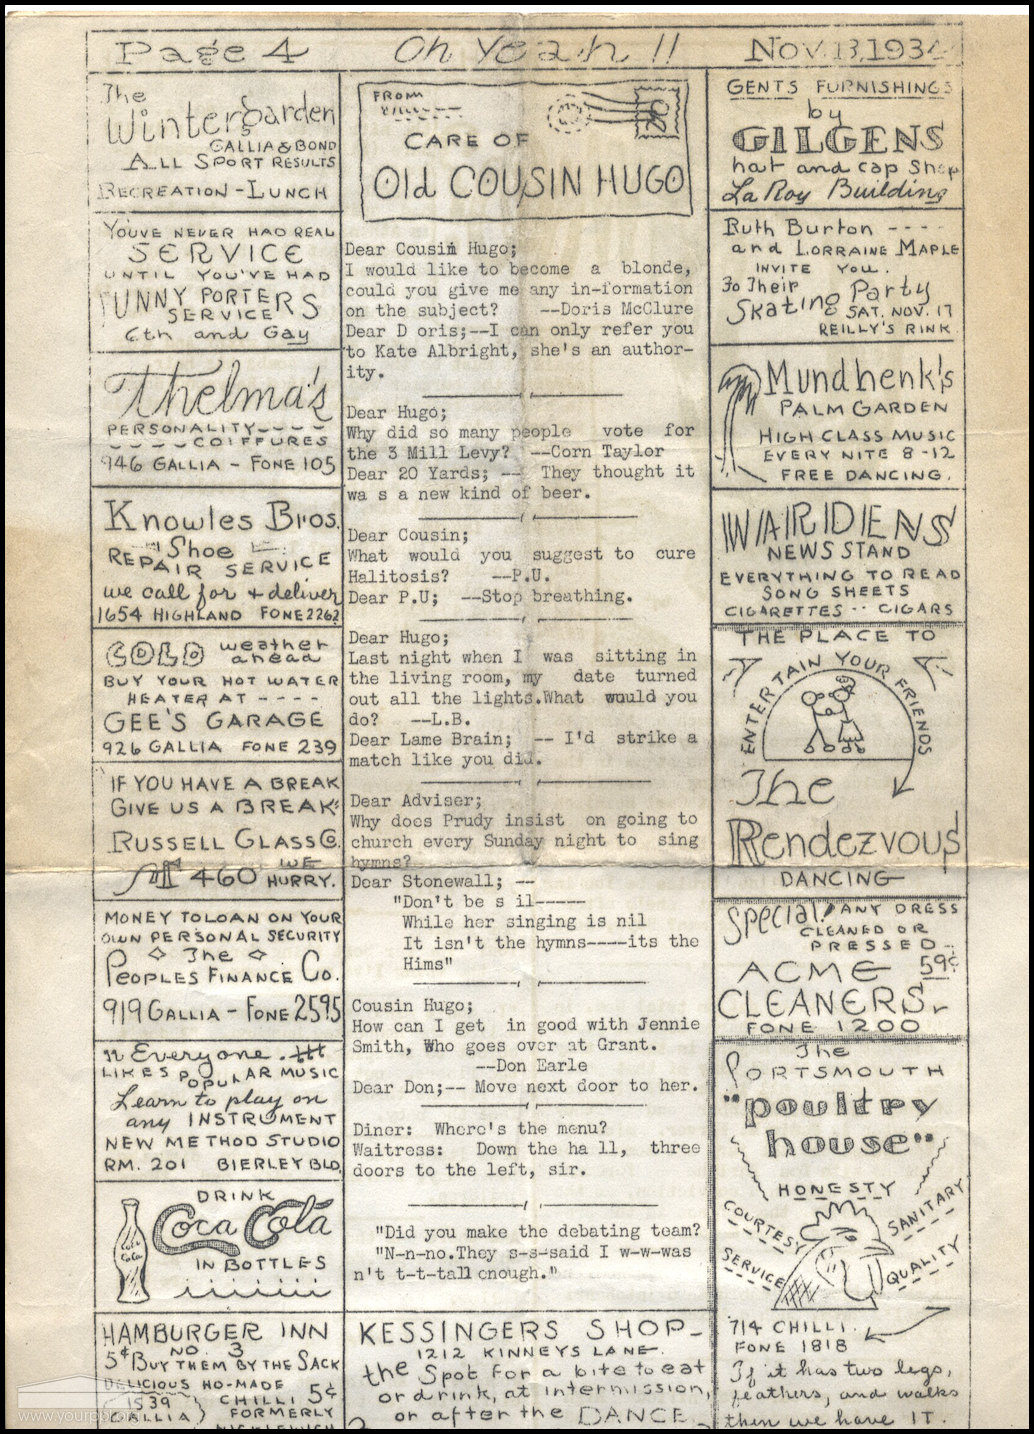 Page 4 Oh Yeah !! Nov. 13, 1934
The
Wintergarden
GALLIA & BOND
ALL SPORT RESULTS
RECREATION - LUNCH
YOU'VE NEVER HAD REAL
SERVICE
UNTIL YOU'VE HAD
TUNNY PORTERS
SERVICE
6th and Gay
Thelma's
PERSONALITY----
----COIFFURES
946 GALLIA - FONE 105
Knowles Bros.
Shoe
REPAIR SERVICE
we call for + deliver
1654 HIGHLAND FONE 2262
COLD weather
ahead
BUY YOUR HOT WATER
HEATER AT ----
GEE'S GARAGE
926 GALLIA FONE 239
IF YOU HAVE A BREAK
GIVE US A BREAK:
RUSSELL GLASS Co.
460 WE
HURRY.
MONEY TO LOAN ON YOUR
OWN PERSONAL SECURITY
The
PEOPLES FINANCE Co.
919 GALLIA - FONE 2595
Everyone.
LIKES POPULAR MUSIC
Learn to play on
any INSTRUMENT
NEW METHOD STUDIO
RM. 201 BIERLEY BLD.
DRINK
Coca Cola
Coca
Cola
IN BOTTLES
HAMBURGER INN
NO. 3
5¢ BUY THEM BY THE SACK
DELICIOUS HO-MADE
1539 CHILLI 5¢
GALLIA FORMERLY
FROM
CARE OF
Old COUSIN HUGO
Dear Cousin Hugo;
I would like to become a blonde,
could you give me any in-formation
on the subject? --Doris McClure
Dear D oris;--I can only refer you
to Kate Albright, she's an author-
ity.
Dear Hugo;
Why did so many people vote for
the 3 Mill Levy? --Corn Taylor
Dear 20 Yards; -- They thought it
wa s a new kind of beer.
Dear Cousin;
What would you suggest to cure
Halitosis? --P.U.
Dear P.U; --Stop breathing.
Dear Hugo;
Last night when I was sitting in
the living room, my date turned
out all the lights.What would you
do? --L.B.
Dear Lame Brain; -- I'd strike a
match like you did.
Dear Adviser;
Why does Prudy insist on going to
church every Sunday night to sing
hymns?
Dear Stonewall; --
"Don't be s il-----
While her singing is nil
It isn't the hymns----its the
Hims"
Cousin Hugo;
How can I get in good with Jennie
Smith, Who goes over at Grant.
--Don Earle
Dear Don;-- Move next door to her.
Diner: Where's the menu?
Waitress: Down the ha ll, three
doors to the left, sir.
"Did you make the debating team?
"N-n-no.They s-s-said I w-w-was
n't t-t-tall enough."
KESSINGERS SHOP-
1212 KINNEYS LANE.
the Spot for a bite to eat
or drink, at intermission,
or after the DANCE
GENTS FURNISHINGS
by
GILGENS
hat and cap Shop
La Roy Building
Ruth Burton ----
and LORRAINE MAPLE
INVITE YOU.
To Their
Skating Party
SAT. NOV. 17
REILLY'S RINK.
Mundhenk's
PALM GARDEN
HIGH CLASS MUSIC
EVERY NITE 8-12
FREE DANCING.
WARDENS
NEWS STAND
EVERYTHING TO READ
SONG SHEETS
CIGARETTES -- CIGARS
THE PLACE TO
ENTERTAIN YOUR FRIENDS
The
Rendezvous
DANCING
Special! ANY DRESS
CLEANED OR
PRESSED--
ACME 59¢
CLEANERS-
FONE 1200
The
PORTSMOUTH
"poultry
house"
HONESTY
COURTESY
SANITARY
SERVICE
QUALITY
714 CHILLI.
FONE 1818
If it has two legs,
feathers, and walks
then we have IT.